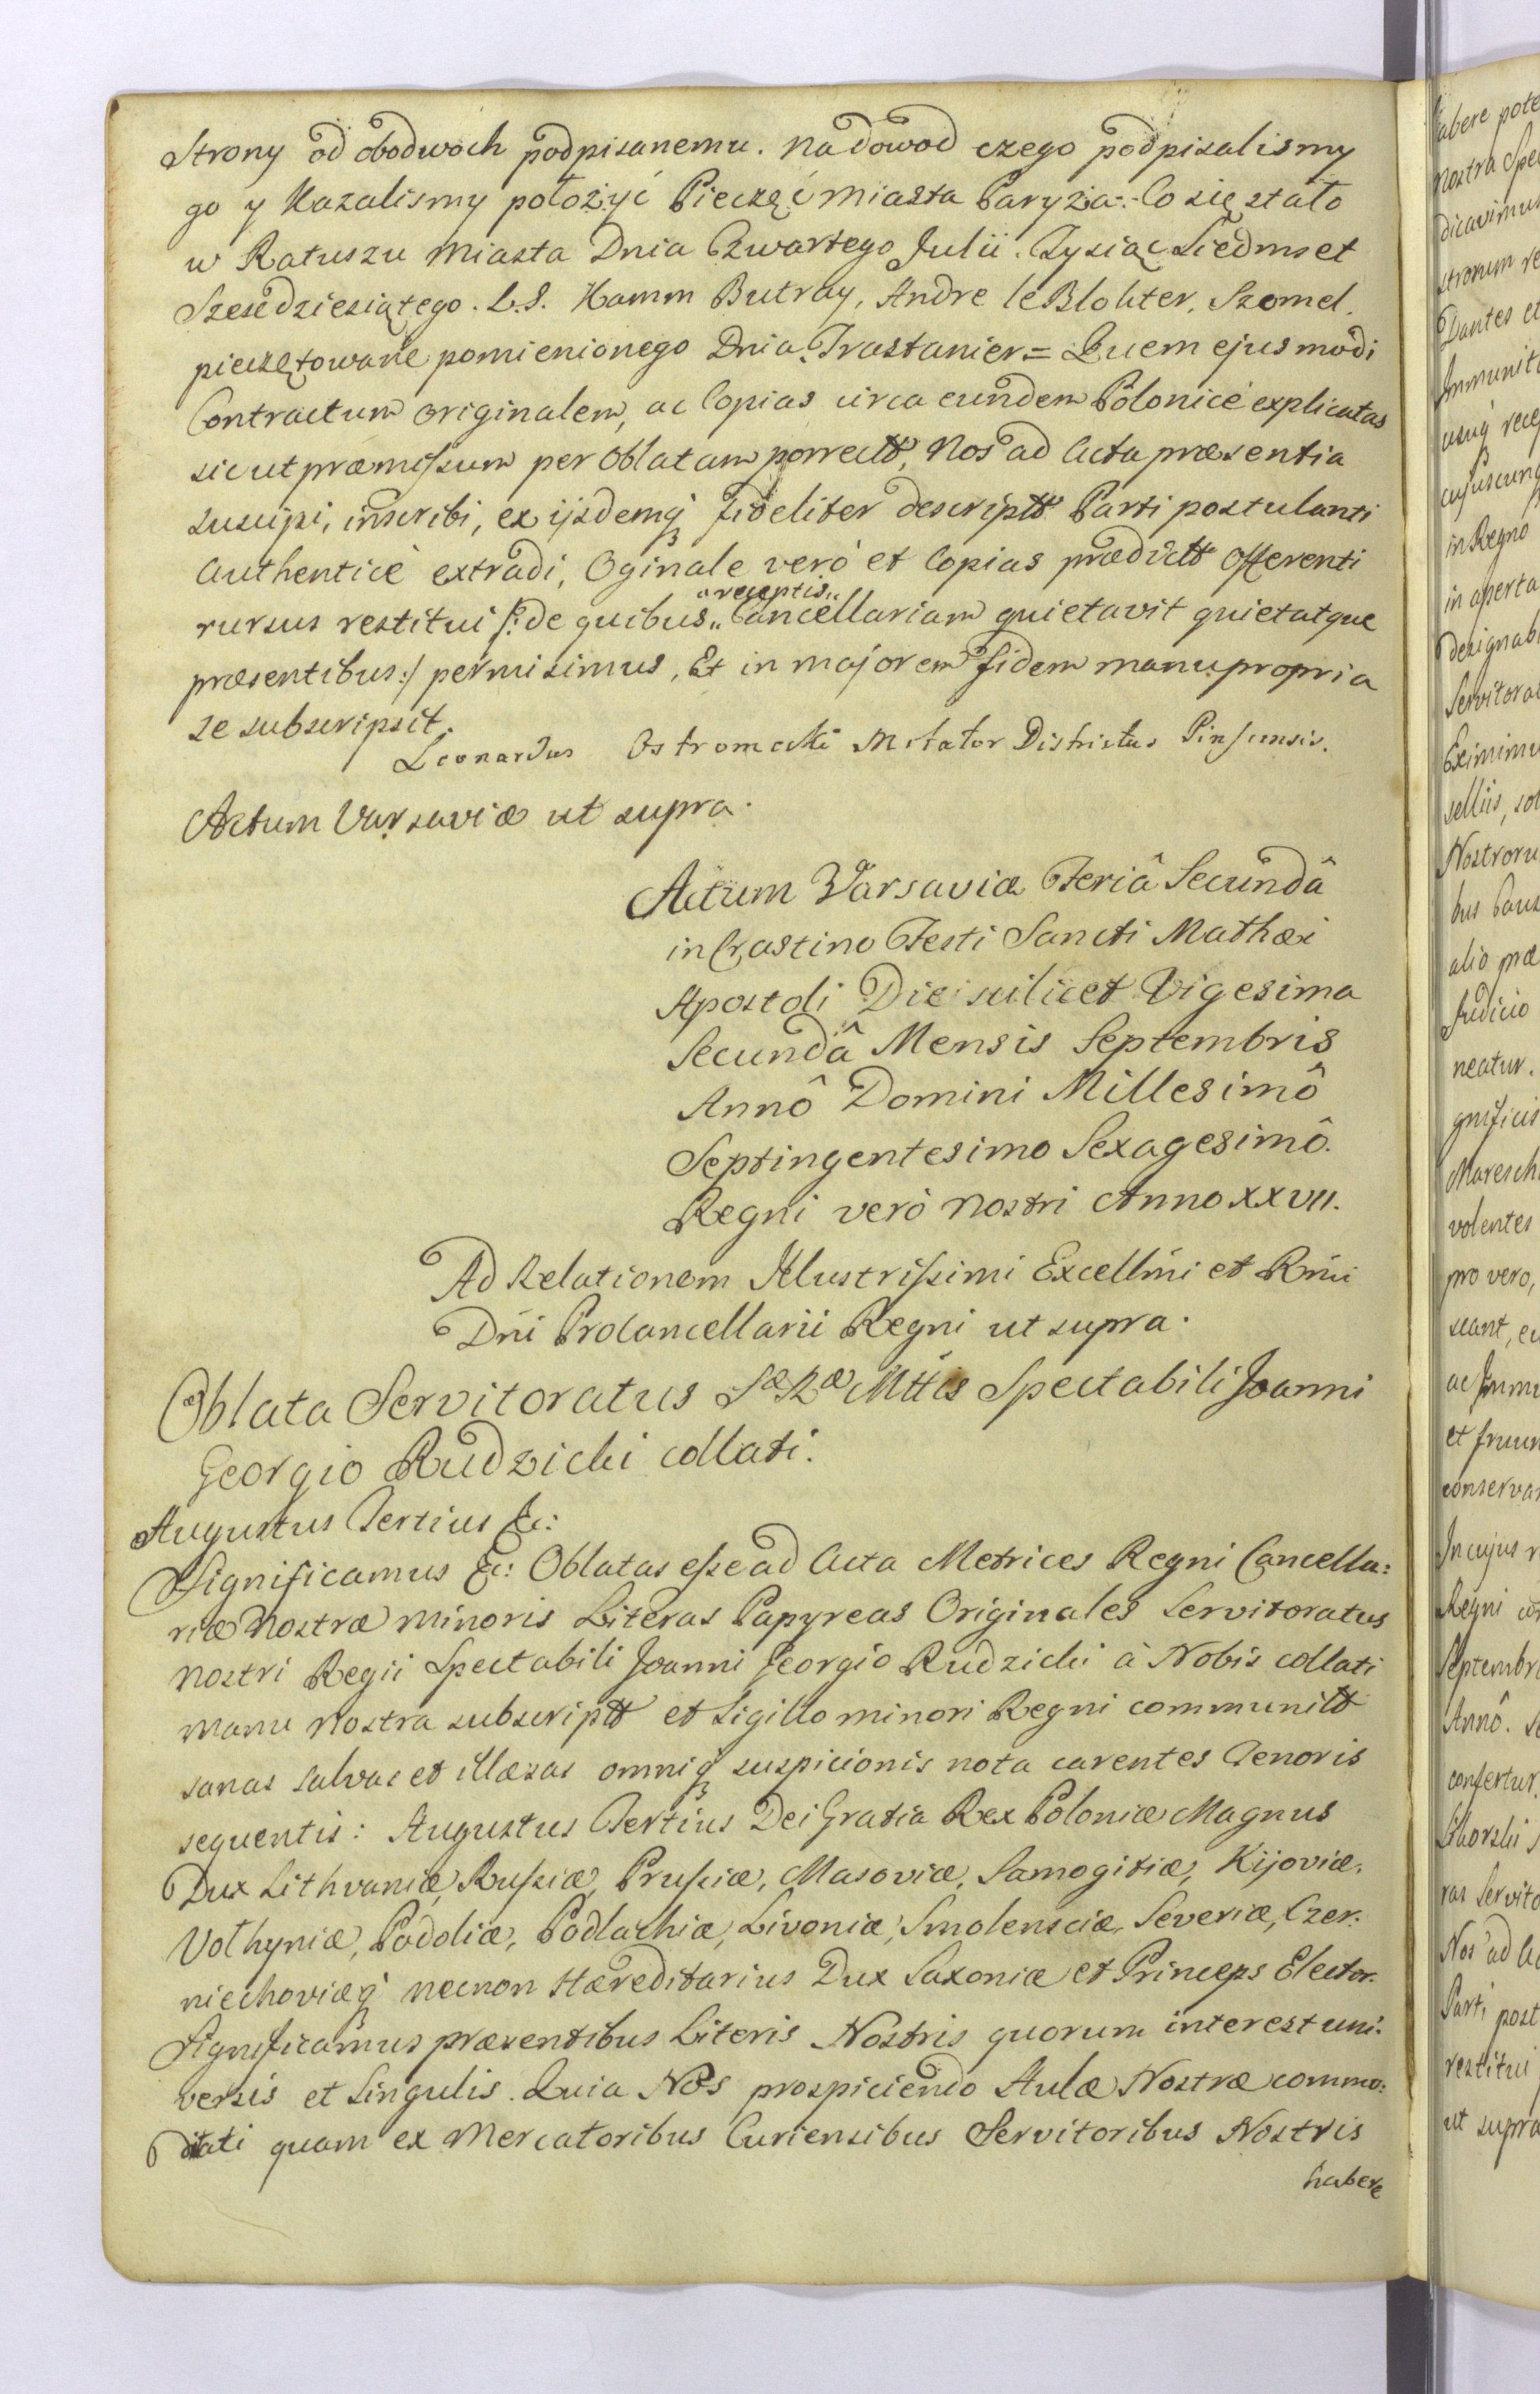 Strony od obodwoch podpisanemu. na dowod czego podpisalismy
go y Kazalismy położyć Pieczęć Miasta Paryża: Co się stało
w Ratuszu Miasta Dnia Czwartego Julii. Tysiąc Siedmset
Szescdziesiątego. L.S. Hamm Butray, Andre le Blohter. Szomel.
pieczętowane pomienionego Dnia. Trastanier = Quem ejusmodi
Contractum originalem, ac Copias circa eundem Polonicè explicatas
sicut præmissum per Oblatam porrectt, Nos ad Acta præsentia
suscipi, inscribi, ex ijsdemq fideliter descriptt Parti postulanti
Authenticè extradi, Oginale verò et Copias prædictt Offerenti
rursus restitui /: de quibus „receptis„ Cancellariam quietavit quietatque
præsentibus :/ permisimus, Et in majorem fidem manu propria
se subscripsit.
Leonardus Ostromecki Metator Districtus Pinscensis.
Actum Varsaviæ ut supra.
Actum Varsaviæ Feriâ Secundâ
in Crastino Festi Sancti Mathæi
Apostoli Die scilicet Vigesima
Secundâ Mensis Septembris
Annô Domini Millesimô
Septingentesimo Sexagesimô.
Regni verò Nostri Anno XXVII.
Ad Relationem Illustrissimi Excellmi et Rmi
Dni Procancellarii Regni ut supra.
Oblata Servitoratus Sæ Ræ Mttis Spectabili Joanni
Georgio Rudzicki collati.
Augustus Tertius &c:
Significamus &c: Oblatas esse ad Acta Metrices Regni Cancella:
riæ Nostræ minoris Literas Papyreas Originales Servitoratus
Nostri Regii Spectabili Joanni Georgio Rudzicki à Nobis collati
Manu Nostra subscriptt et Sigillo minori Regni communitt
sanas salvas et illæsas omniq suspicionis nota carentes Tenoris
sequentis: Augustus Tertius Dei Gratia Rex Poloniæ Magnus
Dux Lithvaniæ, Russiæ, Prussiæ, Masoviæ, Samogitiæ, Kijoviæ,
Volhyniæ, Podoliæ, Podlachiæ, Livoniæ, Smolensciæ, Severiæ, Czer:
niechoviæq necnon Hæreditarius Dux Saxoniæ et Princeps Elector.
Significamus præsentibus Literis Nostris quorum interest uni:
versis et singulis. Quia Nos prospiciendo Aulæ Nostræ commo:
ditati quam ex Mercatoribus Curiensibus Servitoribus Nostris
habere